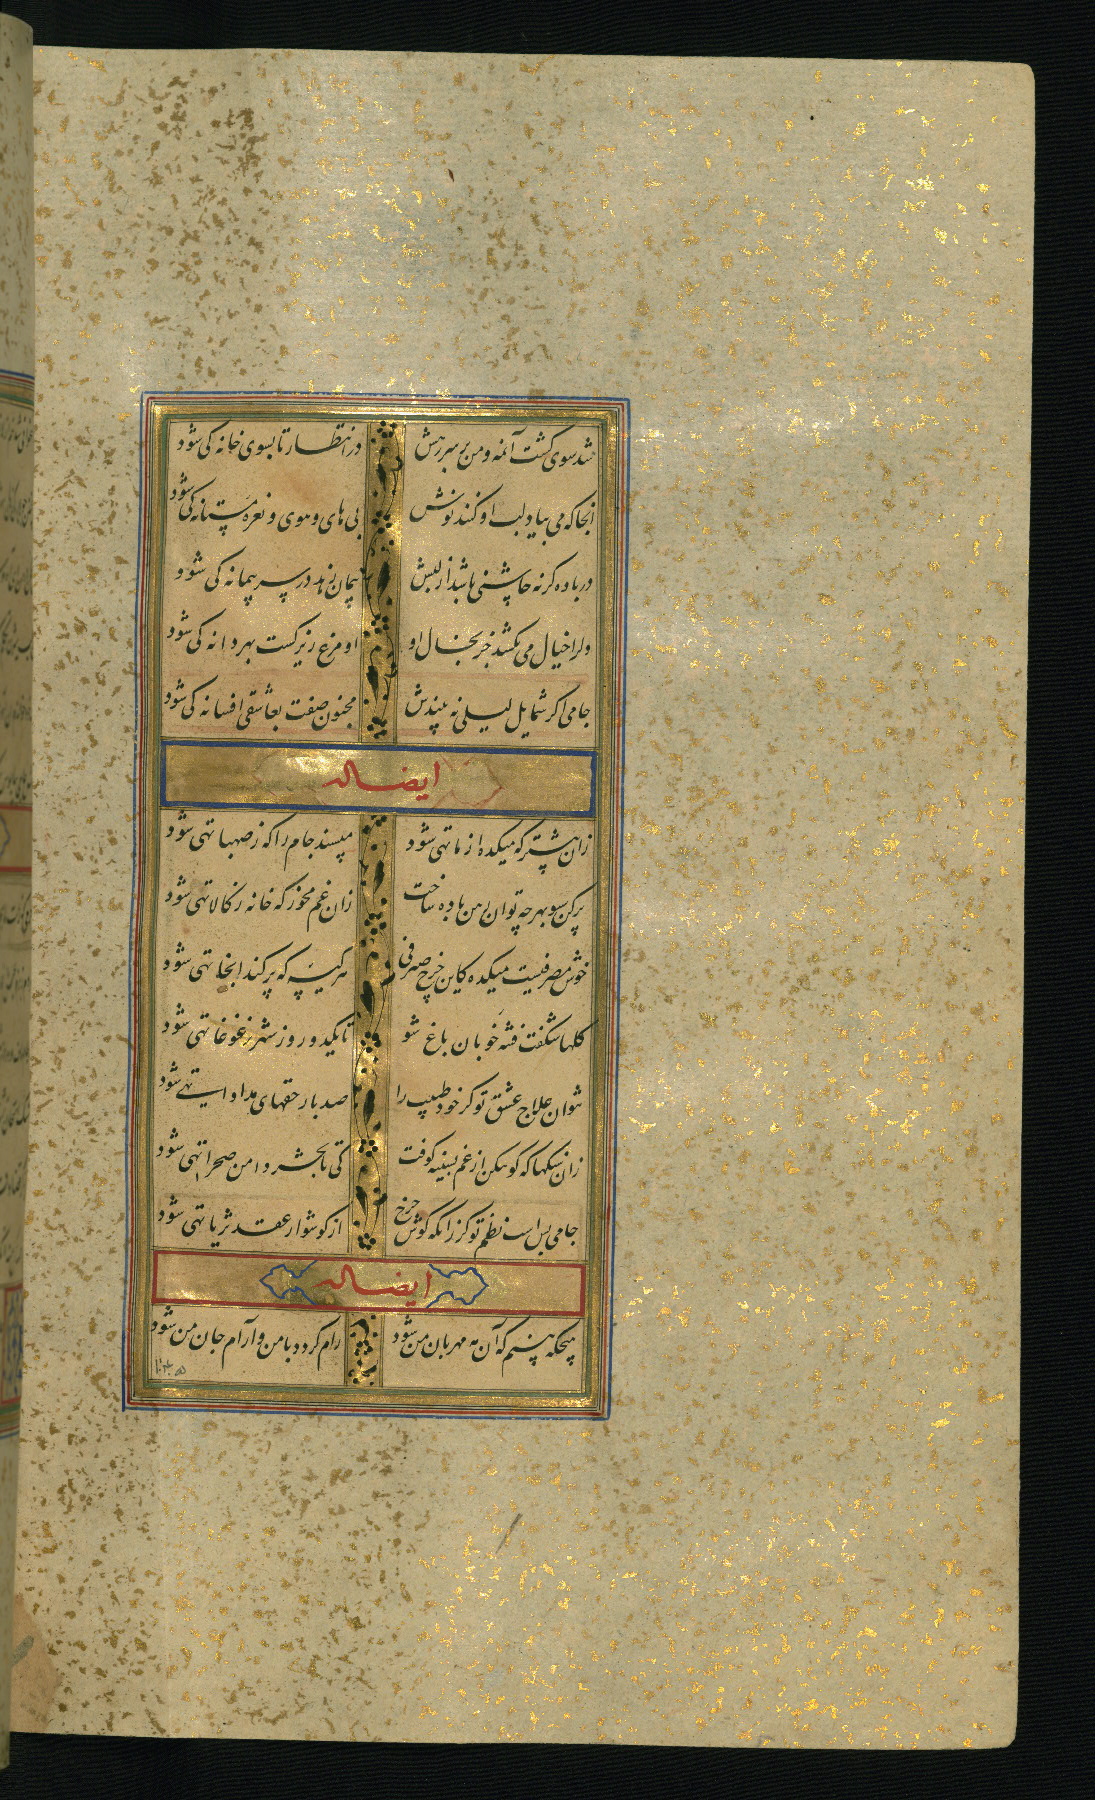 شد سوی کشت آن مه و من بر سر رهش در انتظار تا بسوی خانه کی شود
آنجا که می بیاد لب او کنند نوش بی های و هوی و نعره مستانه کی شود
در باده کر نه چاشنی باشد از لبش پیمان زهد در سر پیمانه کی شود
دل را خیال می نکشد جز بخال او او مرغ زیرکست بهر دانه کی شود
جامی اکر شمایل لیلی نه بیندش مجنون صفت بعاشقی افسانه کی شود
ایضا له
زان پیشتر که میکده از ما تهی شود مپسند جام را که ز صهبا تهی شود
پر کن سبو بهر چه توان من باده ساخت زان غم مخور که خانه ز کالا تهی شود
خوش مصرفیست میکده کاین خرج صیرفی هر کیسه که پر کند آنجا تهی شود
کلها شکفت فتنه خوبان باغ شو تا یکدو روز شهر ز غوغا تهی شود
نتوان علاج عشق تو کر خود طبیب را صد بار حقهای مداوا تهی شود
زان سنکها که کوهکن از غم بسینه کوفت کی تا بحشر دامن صحرا تهی شود
جامی بس است نظم تو کر زانکه کوش چرخ از کوشوار عقد ثریا تهی شود
ایضا له
هیچکه بینم که آن مه مهربان من شود رام کردد با من و آرام جان من شود